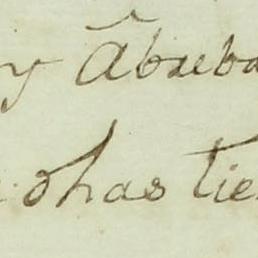 y Âbaeba
ohas tie